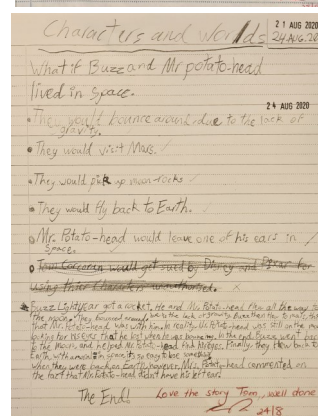 Characters and Worlds
21 AUG 2020
24.AUG.20
What if Buzz and Mr potato-head
lived in Space.
24 AUG 2020
• They would bounce around due to the lack of
gravity.
• They would visit Mars.
• They would pick up moon-rocks
• They would fly back to Earth.
• Mr. Potato-head would leave one of his ears in
Space.
• Tom Corcoran would get sued by Disney and Pixar for
using their Characters unauthorised.
Buzz Lightyear got a rocket. He and Mr. Potato-head flew all the way to
the moon. They bounced around, due to the lack of gravity. Buzz then flew to Mars,
that Mr. Potato-head was with him. In reality, Mr. Potato-head was still on the moon
looking for his ears that he lost when he was bouncing. In the end Buzz went back
to the Moon, and helped Mr. Potato-head. Finally, they flew back to
Earth with a in space its so easy to lose something
when they were back on Earth, however, Mr. Potato-head commented on
the fact that Mr. Potato-head didn't have his left ear.
The End!
Love the story Tom, well done
24/8